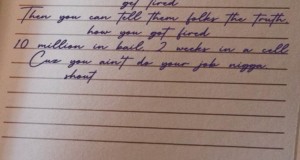 get fired
Then you can tell them folks the truth,
how you got fired
10 million in bail, 2 weeks in a cell
Cuz you ain't do your job nigga,
shout